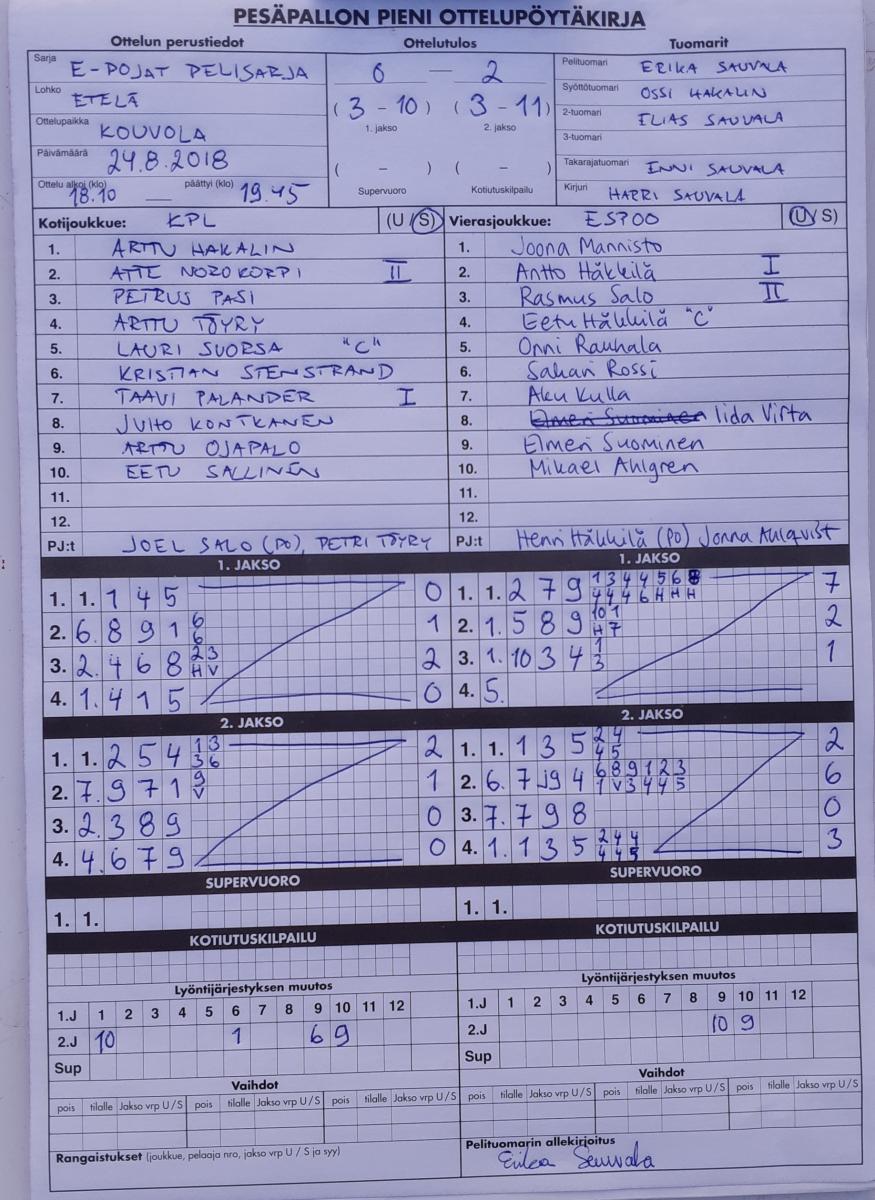 PESÄPALLON PIENI OTTELUPÖYTÄKIRJA
Ottelun perustiedot Ottelutulos Tuomarit
Sarja E-POJAT PELISARJA
Lohko ETELÄ
Ottelupaikka KOUVOLA
Päivämäärä 24.8.2018
Ottelu alkoi (klo) 18.10 päättyi (klo) 19.45
0 — 2
(3 - 10) (3 - 11)
1. jakso 2. jakso
( - ) ( - )
Supervuoro Kotiutuskilpailu
Pelituomari ERIKA SAUVALA
Syöttötuomari OSSI HAKALIN
2-tuomari ELIAS SAUVALA
3-tuomari
Takarajatuomari INNI SAUVALA
Kirjuri HARRI SAUVALA
Kotijoukkue: KPL (U / S)
1. ARTTU HAKALIN
2. ATTE NOROKORPI II
3. PETRUS PASI
4. ARTTU TÖYRY
5. LAURI SUORSA "C"
6. KRISTIAN STENSTRAND
7. TAAVI PALANDER I
8. JUHO KONTKANEN
9. ARTTU OJAPALO
10. EETU SALLINEN
11.
12.
PJ:t JOEL SALO (PO), PETRI TÖYRY
Vierasjoukkue: ESPOO (U / S)
1. Joona Mannisto
2. Antto Häkkilä I
3. Rasmus Salo II
4. Eetu Häkkilä "C"
5. Onni Rauhala
6. Sakari Rossi
7. Aku Kulla
8. Elmeri Suominen Iida Virta
9. Elmeri Suominen
10. Mikael Ahlgren
11.
12.
PJ:t Henri Häkkilä (PO) Jonna Ahlqvist
1. JAKSO
1. 1. 1 4 5 0
2. 6. 8 9 1 6 6 1
3. 2. 4 6 8 2 3 H V 2
4. 1. 4 1 5 0
2. JAKSO
1. 1. 2 5 4 1 3 3 6 2
2. 7. 9 7 1 9 V 1
3. 2. 3 8 9 0
4. 4. 6 7 9 0
SUPERVUORO
1. 1.
KOTIUTUSKILPAILU
Lyöntijärjestyksen muutos
1.J 1 2 3 4 5 6 7 8 9 10 11 12
2.J 10 1 6 9
Sup
Vaihdot
pois tilalle Jakso vrp U / S pois tilalle Jakso vrp U / S pois tilalle Jakso vrp U / S
Rangaistukset (joukkue, pelaaja nro, jakso vrp U / S ja syy)
1. JAKSO
1. 1. 2 7 9 1 3 4 4 5 6 8 4 4 4 6 H H H 7
2. 1. 5 8 9 10 1 H 7 2
3. 1. 10 3 4 1 3 1
4. 5.
2. JAKSO
1. 1. 1 3 5 2 4 4 5 2
2. 6. 7 9 4 6 8 9 1 2 3 1 V 3 4 4 5 6
3. 7. 7 9 8 0
4. 1. 1 3 5 2 4 4 4 4 5 3
SUPERVUORO
1. 1.
KOTIUTUSKILPAILU
Lyöntijärjestyksen muutos
1.J 1 2 3 4 5 6 7 8 9 10 11 12
2.J 10 9
Sup
Vaihdot
pois tilalle Jakso vrp U / S pois tilalle Jakso vrp U / S pois tilalle Jakso vrp U / S
Pelituomarin allekirjoitus
Erika Sauvala